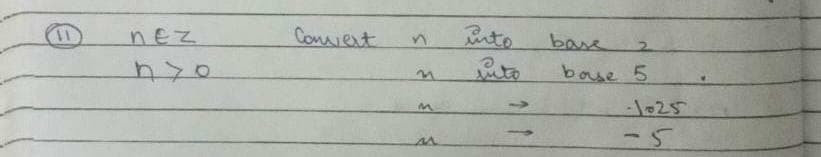 (11) n ∈ Z Convert n into base 2
n > 0 n into base 5 .
n → -1025
n → -5